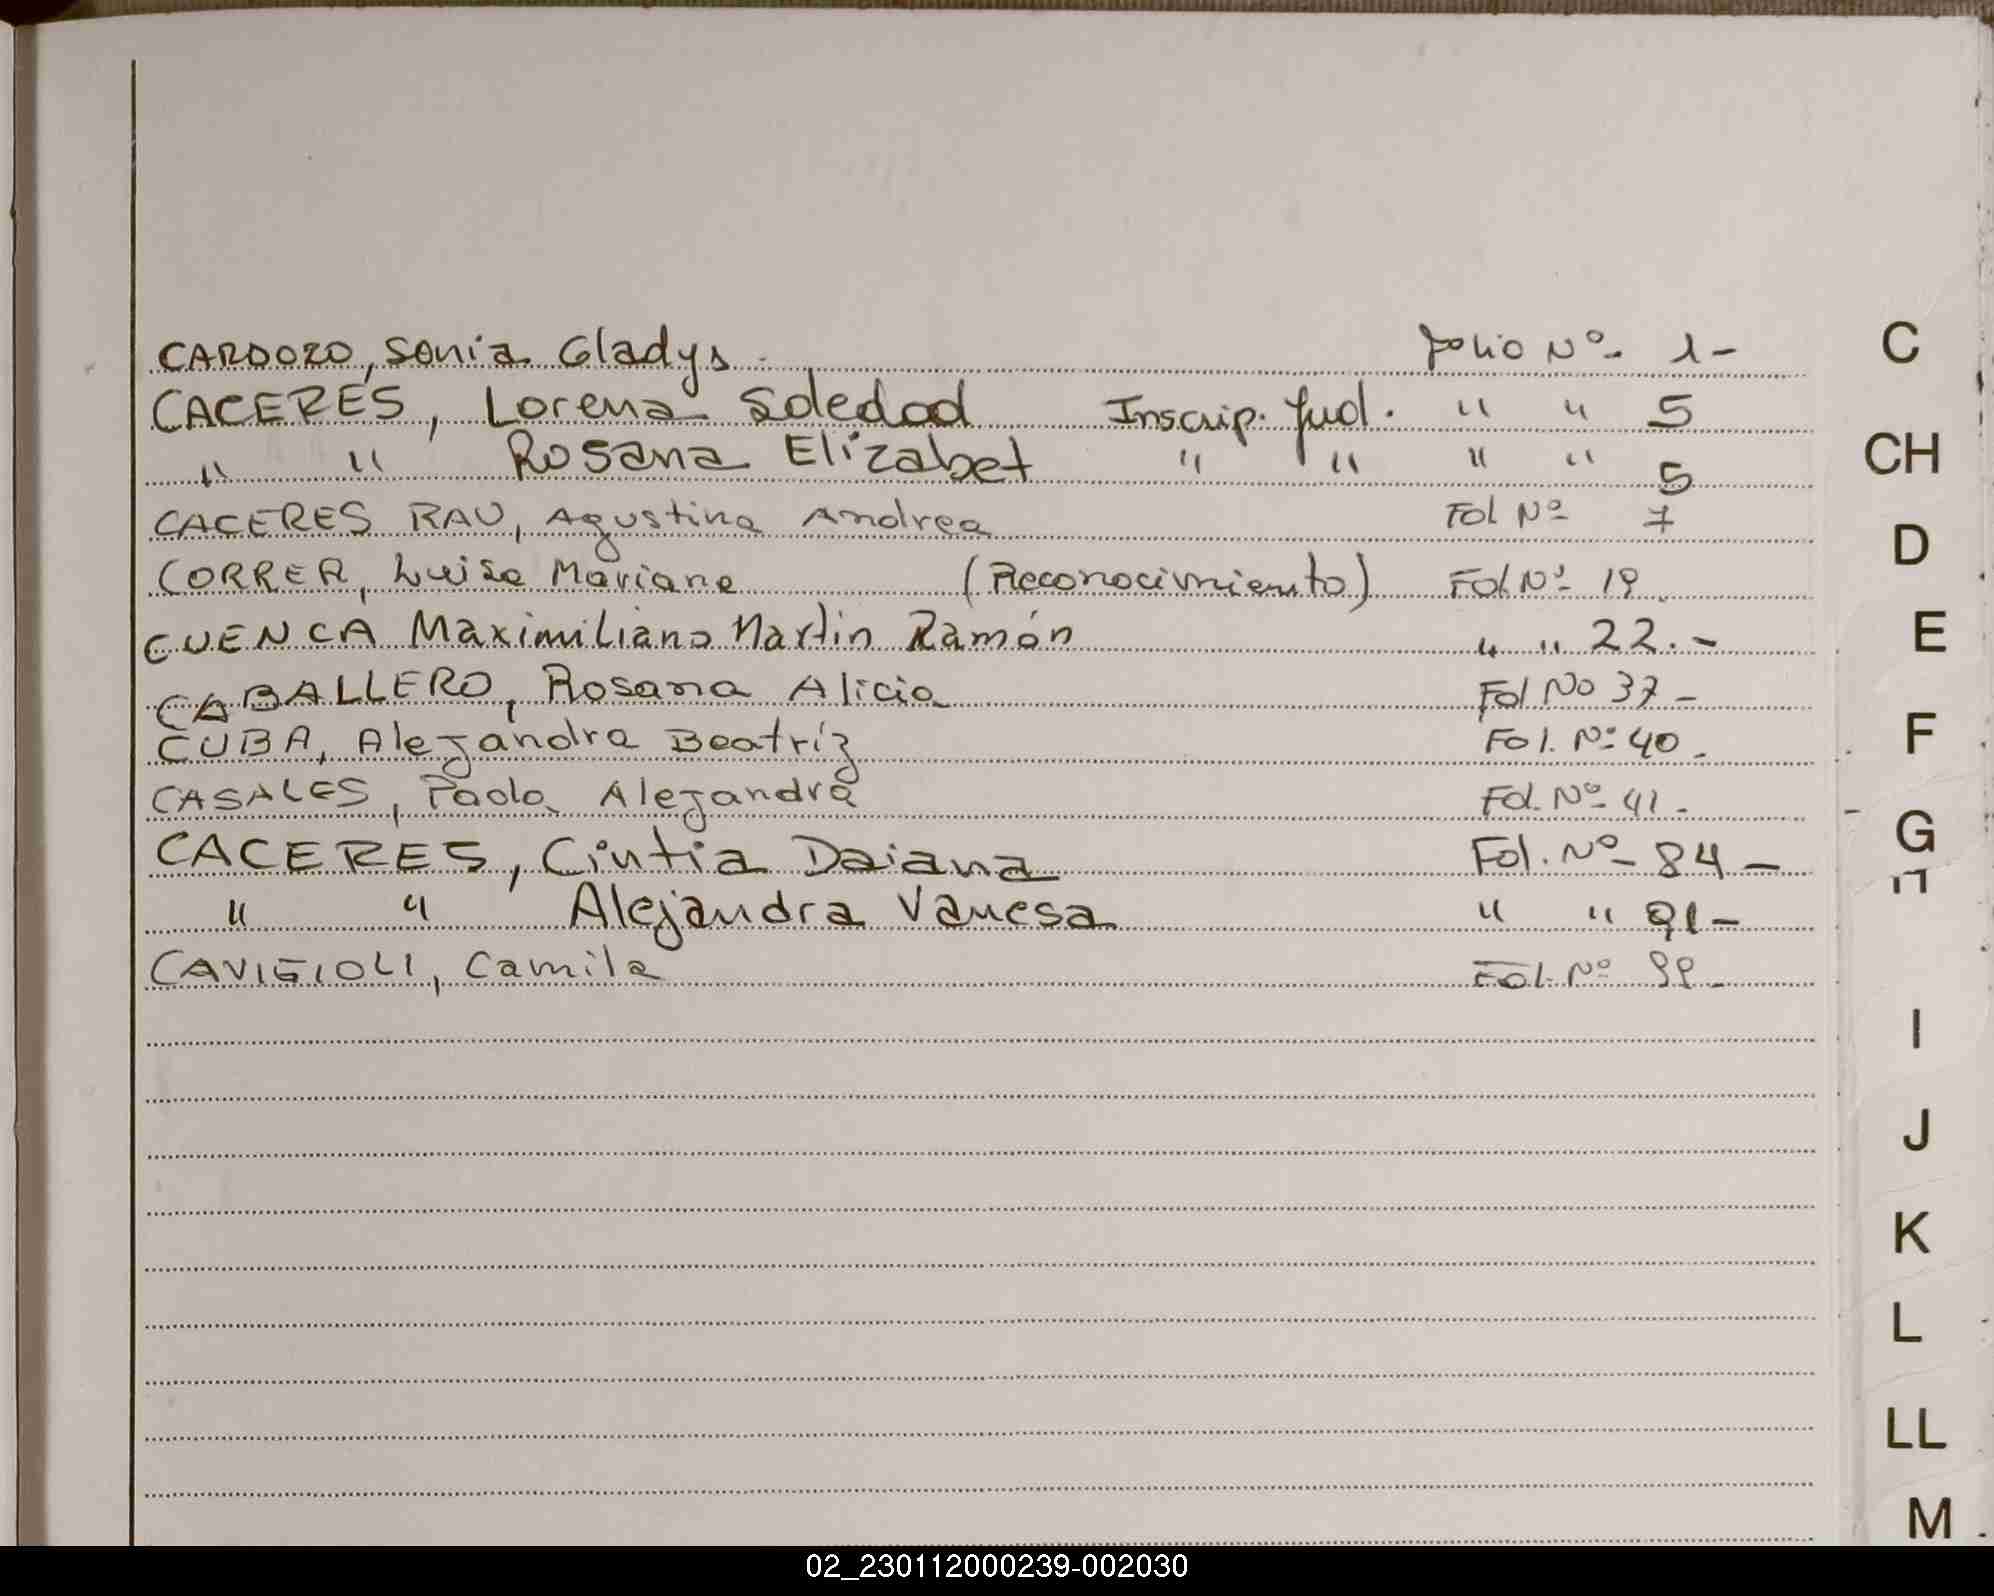 CARDOZO, Sonia Gladys. folio Nº- 1-
CACERES, Lorena Soledad Inscrip. Jud. " " 5
" " Rosana Elizabet " " " " 5
CACERES RAU, Agustina Andrea Fol Nº 7
CORREA, Luisa Mariana (Reconocimiento) Fol Nº 19.
CUENCA Maximiliano Martin Ramón " " 22.-
CABALLERO, Rosana Alicia Fol No 37-
CUBA, Alejandra Beatríz Fol. Nº 40.
CASALES, Paola Alejandra Fol. Nº- 41.
CACERES, Cintia Daiana Fol. Nº- 84-
" " Alejandra Vanesa " " 91-
CAVIGIOLI, Camila Fol. Nº 99.
C
CH
D
E
F
G
I
J
K
L
LL
M
02_230112000239-002030